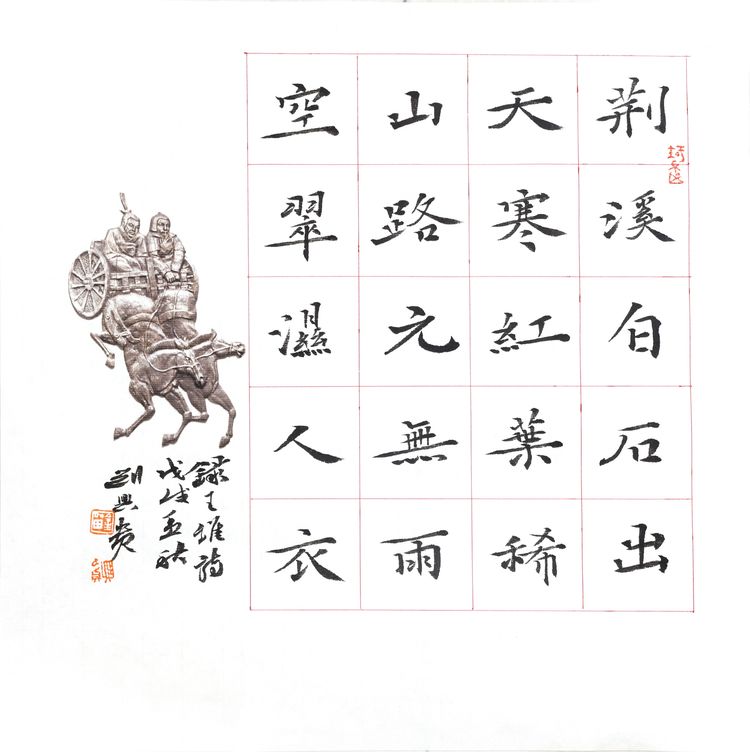 荆溪白石出
天寒紅葉稀
山路元無雨
空翠濕人衣
錄王維詩
戊戌孟秋
劉興賢